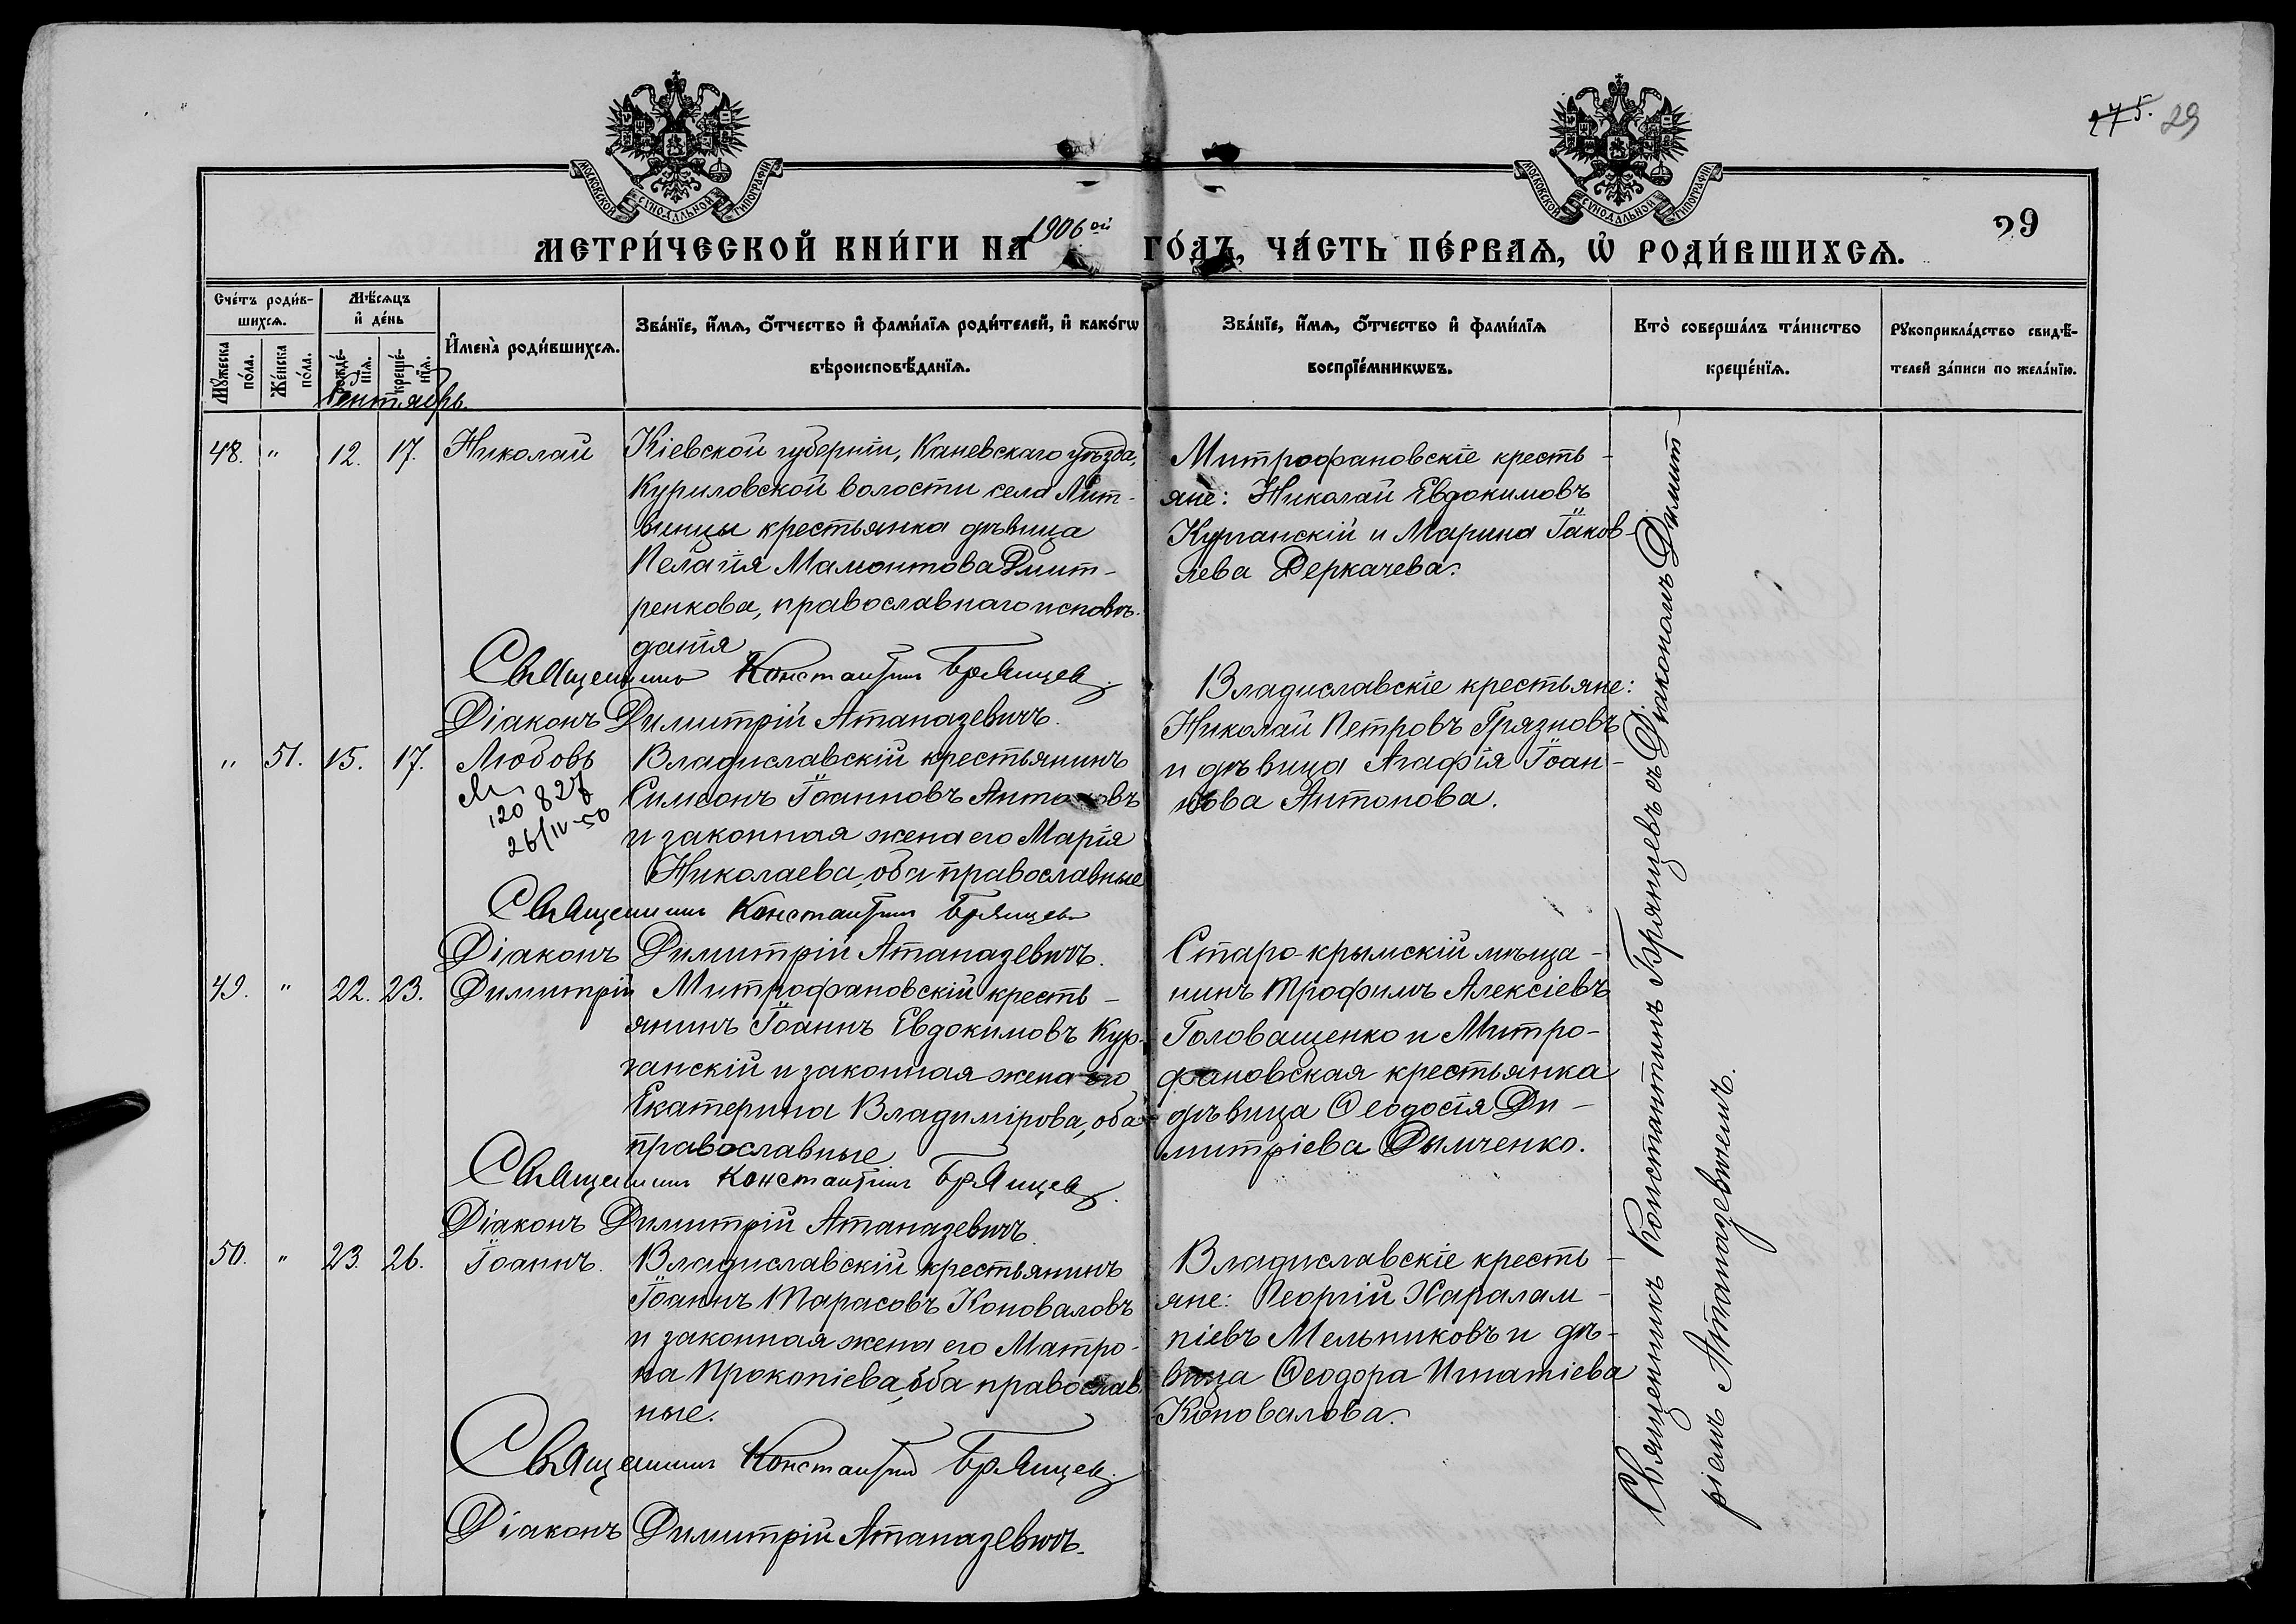 275. 29
МОСКОВСКОЙ СѴНОДАЛЬНОЙ ТИПОГРАФІИ
МОСКОВСКОЙ СѴНОДАЛЬНОЙ ТИПОГРАФІИ
29
МЕТРИ́ЧЕСКОЙ КНИ́ГИ НА 1906ой ГО́ДЪ, ЧА́СТЬ ПЕ́РВАѦ, Ѡ҆ РОДИ́ВШИХСѦ.
Сче́тъ роди́в-
шихсѧ.
Мꙋ́жеска по́ла.
Же́нска по́ла.
Мѣ́сѧцъ
и҆ де́нь
рожде́-
нїѧ.
креще́-
нїѧ.
И҆мена̀ роди́вшихсѧ.
Зва́нїе, и҆́мѧ, ѻ҆́тчество и҆ фами́лїѧ роди́телей, и҆ како́гѡ
вѣроисповѣ́данїѧ.
Зва́нїе, и҆́мѧ, ѻ҆́тчество и҆ фами́лїѧ
воспрїе́мникѡвъ.
Кто̀ соверша́лъ та́инство
креще́нїѧ.
Рꙋкоприкла́дство свидѣ́-
телей за́писи по жела́нїю.
Сентябрь.
48. " 12. 17. Николай
Кіевской губерніи, Каневскаго уѣзда,
Куриловской волости села Лит-
винцы крестьянка дѣвица
Пелагія Мамонтова Дмит-
ренкова, православнаго исповѣ-
данія
Митрофановскіе кресть-
яне: Николай Евдокимовъ
Курганскій и Марина Іаков-
лева Деркачева.
Священникъ Константинъ Брянцевъ.
Діаконъ Димитрій Атаназевичъ.
" 51. 15. 17. Любовь
120 827
26/IV-50
Владиславскій крестьянинъ
Симеонъ Іоанновъ Антоновъ
и законная жена его Марія
Николаева, оба православные
Владиславскіе крестьяне:
Николай Петровъ Грязновъ
и дѣвица Агафія Іоан-
нова Антонова.
Священникъ Константинъ Брянцевъ
Діаконъ Димитрій Атаназевичъ.
49. " 22. 23. Димитрій
Митрофановскій кресть-
янинъ Іоаннъ Евдокимовъ Кур-
ганскій и законная жена его
Екатерина Владимірова, оба
православные
Старо-крымскій мѣща-
нинъ Трофимъ Алексіевъ
Головащенко и Митро-
фановская крестьянка
дѣвица Ѳеодосія Ди-
митріева Дымченко.
Священникъ Константинъ Брянцевъ.
Діаконъ Димитрій Атаназевичъ.
50. " 23. 26. Іоаннъ.
Владиславскій крестьянинъ
Іоаннъ Тарасовъ Коноваловъ
и законная жена его Матро-
на Прокопіева, оба православ
ные.
Владиславскіе кресть-
яне: Георгій Харалам-
піевъ Мельниковъ и дѣ-
вица Ѳеодора Игнатіева
Коновалова.
Священникъ Константинъ Брянцевъ.
Діаконъ Димитрій Атаназевичъ.
Священникъ Константинъ Брянцевъ съ Діакономъ Димит-
ріемъ Атаназевичемъ.